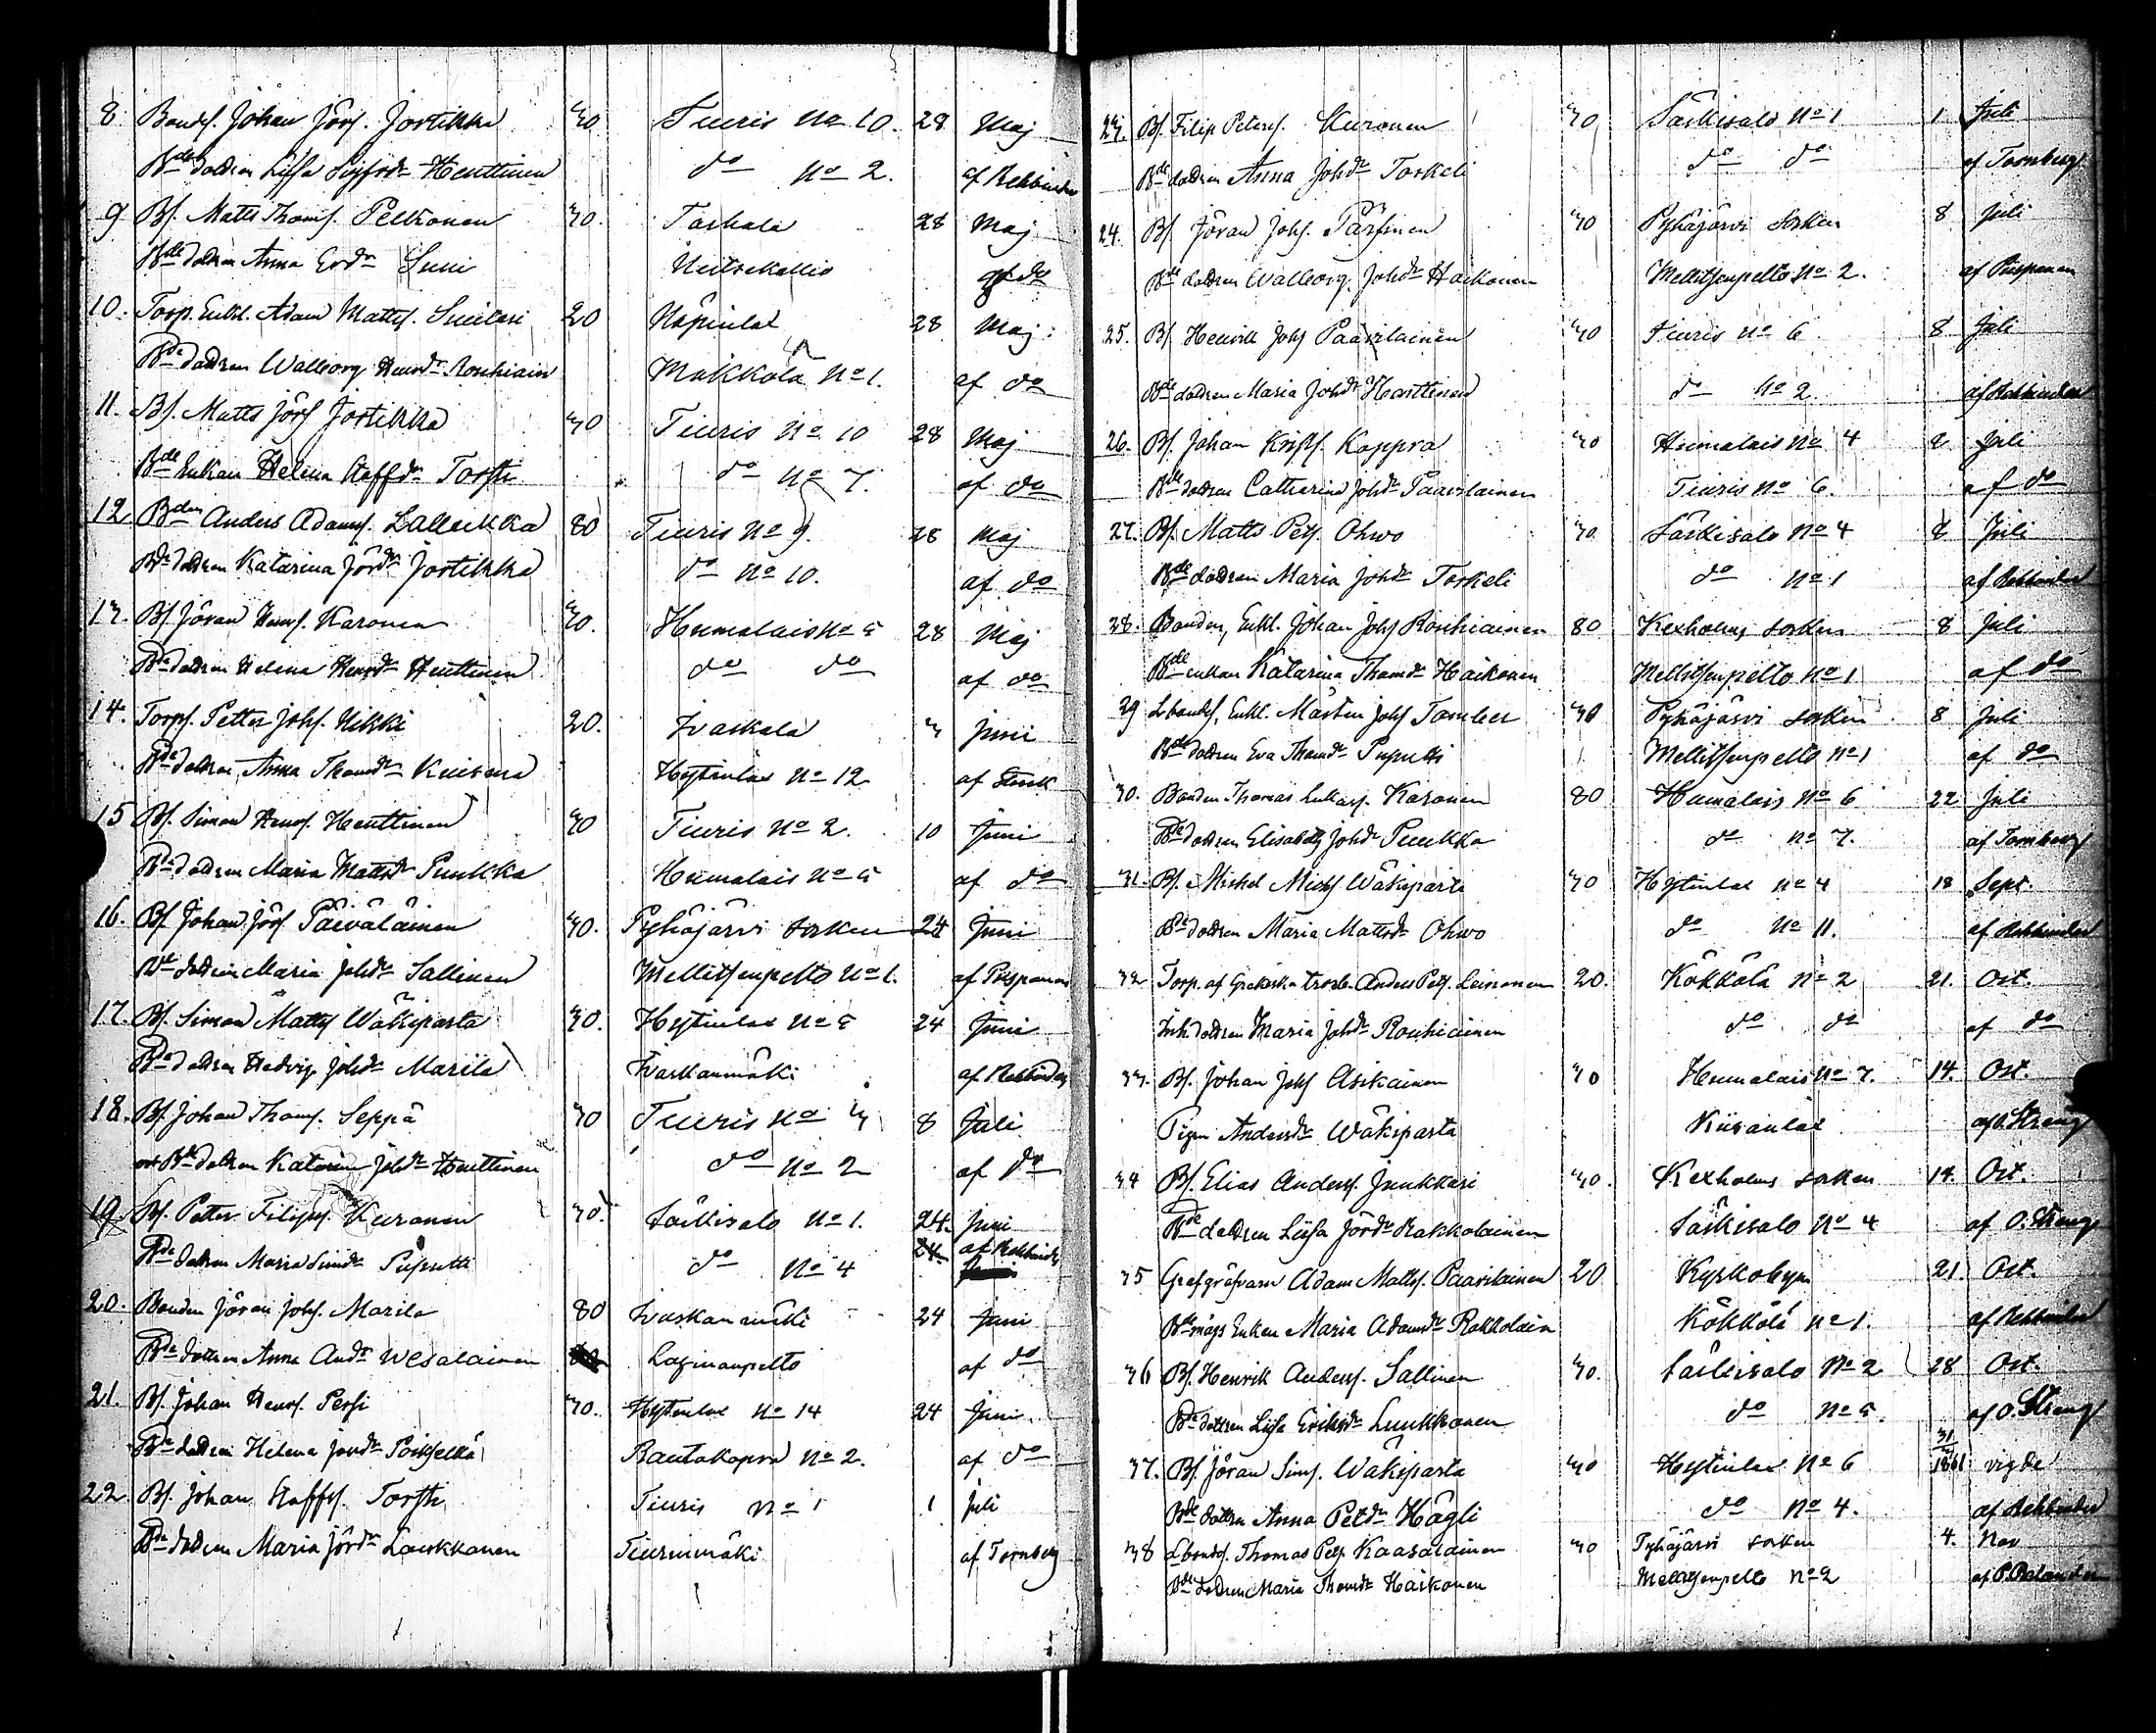 8. Bonds. Johan Jörs. Jortikka 30 Tiuris No 10. 28 Maj
Bde dottren Lissa Sigfrdr Henttinen do No 2. af Rehbinder
9 Bs. Matts Thoms. Pelkonen 30. Taskala 28 Maj
Bde dottren Anna Erdr Suni Neitsekallio af do
10. Torp. Enkl. Adam Matts. Suikari 20 Näpinlax 28 Maj
Bde dottren Walborg Henrdr Rouhiain Makkola No 1. af do
11. Bs. Matts Jörs Jortikka 30 Tiuris No 10 28 Maj
Bde Enkan Helena Staffdr Torsti do No 7. af do
12 Bdn Anders Adams. Lalluikka 80 Tiuris No 9. 28 Maj
Bde dottren Katarina Jördr Jortikka do No 10. af do
13. Bs. Jöran Henrs. Karonen 30. Humalais No 5 28 Maj
Bde dottren Helena Henrdr Henttinen do do af do
14. Torps. Petter Johs. Nikki 20. Ivaskala 3 Juni
Bde dottren Anna Thomdr Kuisma Hytinlax No 12 af
15 Bs. Simon Henrs. Henttinen 30 Tiuris No 2. 10 Juni
Bde dottren Maria Mattsdr Puukka Humalais No 5 af do
16. Bs. Johan Jörs Päiväläinen 30. Pyhäjärvi socken 24 Juni
Bde dottren Maria Johdr Sallinen Mellitsenpelto No 1. af Piispanen
17. Bs. Simon Matts Wäkiparta 30. Hytinlax No 5 24 Juni
Bde dottren Hedvig Johdr Marila Ivaskanmäki af Rehbinder
18. Bs. Johan Thoms. Seppä 30 Tiuris No 3 8 Juli
Bde dottren Katarin Johdr Henttinen do No 2 af do
19 Bs. Petter Filips. Kuronen 30. Särkisalo No 1. 24. Juni
Bde dottren Maria Simdr Puputti do No 4 24 af Rehbinder
20. Bonden Jöran Johs. Marila 80 Ivaskanmäki 24 Juni
Bde dottren Anna Andr Wesalainen Lapinanpelto af do
21. Bs. Johan Henrs. Persi 30. Hytinlax No 14 24 Juni
Bde dottren Helena Jordr Poikselkä Rautakopra No 2. af do
22. Bs. Johan Staffs. Torsti Tiuris No 1 1 Juli
Bde dottren Maria Jördr Laukkanen Tiurinmäki af Tornberg
23. Bs. Filip Peters. Kuronen 30 Särkisalo No 1 1 Juli
Bde dottren Anna Johdr Torkeli do do af Tornberg
24. Bs. Jöran Johs. Pärsinen 30 Pyhäjärvi Socken 8 Juli
Bde dottren Walborg Johdr Haikonen Mellitsenpelto No 2. af Piispanen
25. Bs. Henrik Johs Paavilainen 30 Tiuris No 6 8 Juli
Bde dottren Maria Johdr Henttinen do No 2 af Rehbinder
26. Bs. Johan Krists. Koppra 30 Humalais No 4 8 Juli
Bde dottren Catharina Johdr Paavilainen Tiuris No 6. af do
27. Bs. Matts Pets. Ohwo 30 Särkisalo No 4 8 Juli
Bde dottren Maria Johdr Torkeli do No 1 af Rehbinder
28. Bonden, Enkl. Johan Johs Rouhiainen 80 Kexholms socken 8 Juli
Bde enkan Katarina Thomdr Haikonen Mellitsenpelto No 1 af do
29 Lbonds, Enkl. Mårten Johs Tomber 30 Pyhäjärvi socken 8 Juli
Bde dottren Eva Thomdr Puputti Mellitsenpelto No 1 af do
30. Bonden Thomas Lukass. Karonen 80 Humalais No 6 22 Juli
Bde dottren Elisabeth Johdr Puukka do No 7. af Tornberg
31. Bs. Mickel Michs Wäkiparta 30 Hytinlax No 4 18 Sept.
Bde dottren Maria Mattsdr Ohwo do No 11. af Rehbinder
32 Torp. af Grekiska trosb. Anders Pets. Leinonen 20. Kökkölä No 2 21. Oct.
Inh. dottren Maria Johdr Rouhiainen do do af do
33. Bs. Johan Johs Asikainen 30 Humalais No 7. 14. Oct.
Pigan Andersdr Wäkiparta Kiisanlax af O. Streng
34 Bs. Elias Anders. Junkkari 30. Kexholms socken 14. Oct.
Bde dottren Liisa Jördr Rakkolainen Särkisalo No 4 af O. Streng
35 Grafgräfvaren Adam Matts. Paavilainen 20 Kyrkobyn 21. Oct.
Bde mågs Enkan Maria Adamdr Rokkolain Kökkölä No 1. af Rehbinder
36 Bs. Henrik Anders. Sallinen 30. Särkisalo No 2 28 Oct.
Bde dottren Liisa Eriksdr Luukkonen do No 5. af O. Streng
37. Bs. Jöran Sims. Wäkiparta 30 Hytinlax No 6 31/3 1861 vigde
Bde dottren Anna Petdr Hägli do No 4. af Rehbinder
38 Lbonds. Thomas Pets. Kaasalainen 30 Pyhäjärvi socken 4. Nov
Bde dottren Maria Thomdr Haikonen Mellitsenpelto No 2 af P. Relander